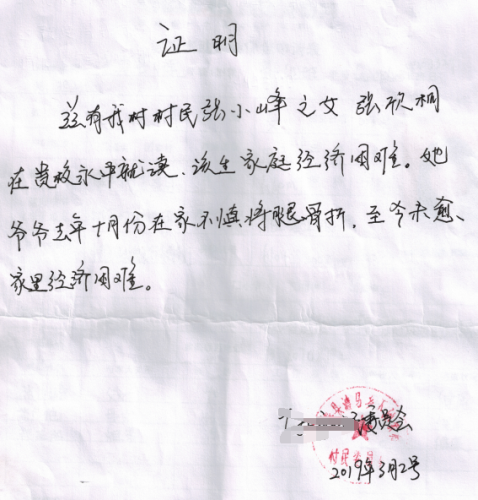 证明
兹有我村村民张小峰之女张欣桐
在贵校永平就读、该生家庭经济困难。她
爷爷去年十月份在家不慎将腿骨折,至今未愈、
家里经济困难。
委员会
村民委员
2019年3月2号